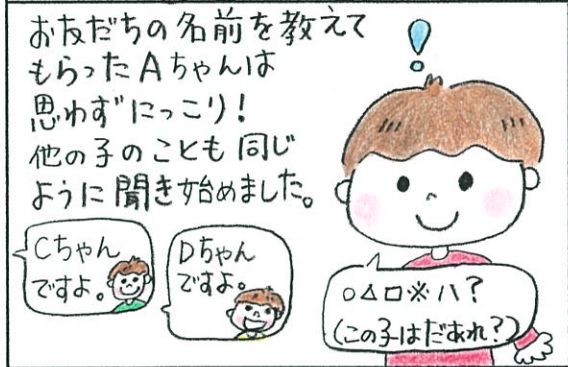 お友だちの名前を教えて
もらったAちゃんは
思わずにっこり！
他の子のことも同じ
ように聞き始めました。
Cちゃん
ですよ。
Dちゃん
ですよ。
○△□※ハ？
(この子はだあれ？)